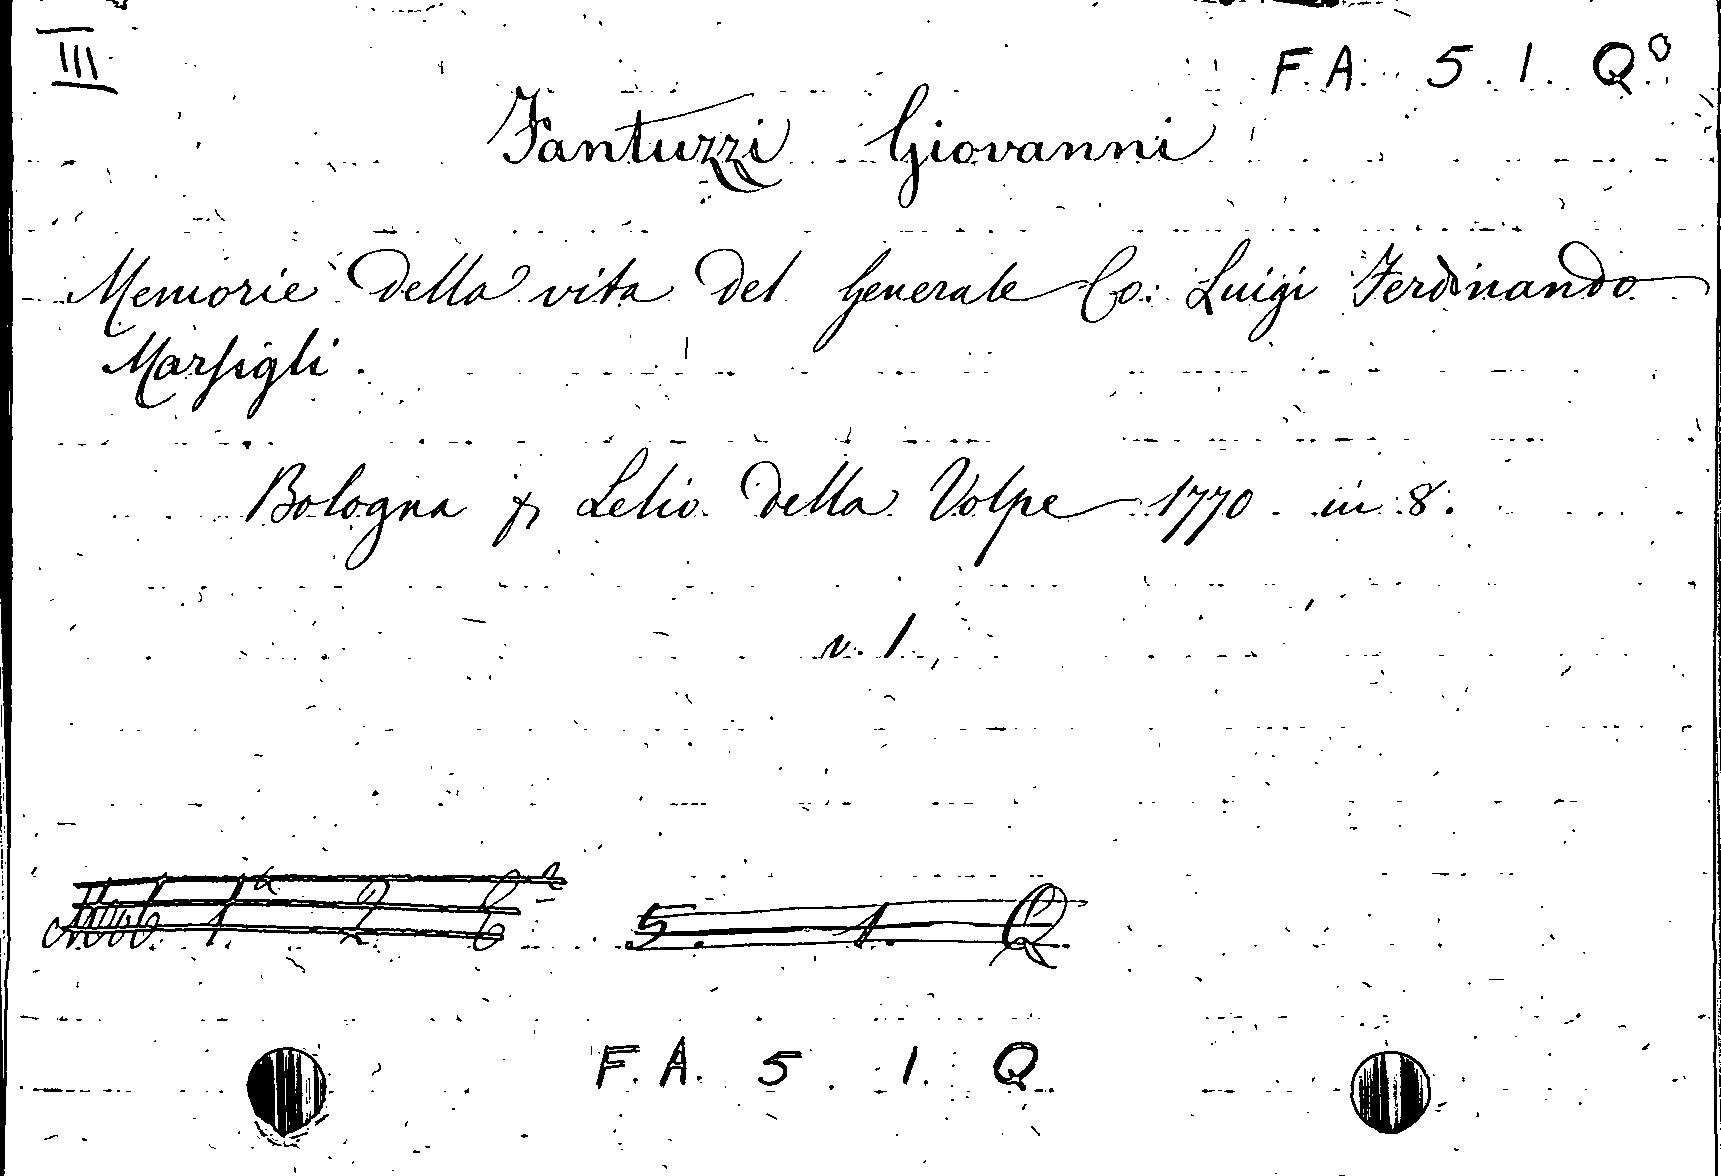 III
F. A. 5. 1. Qº
Fantuzzi Giovanni
Memorie della vita del Generale Co: Luigi Ferdinando
Marsigli.
Bologna p Lelio della Volpe 1770. in 8.
v. 1.
5. 1. Q
F. A. 5. 1. Q.